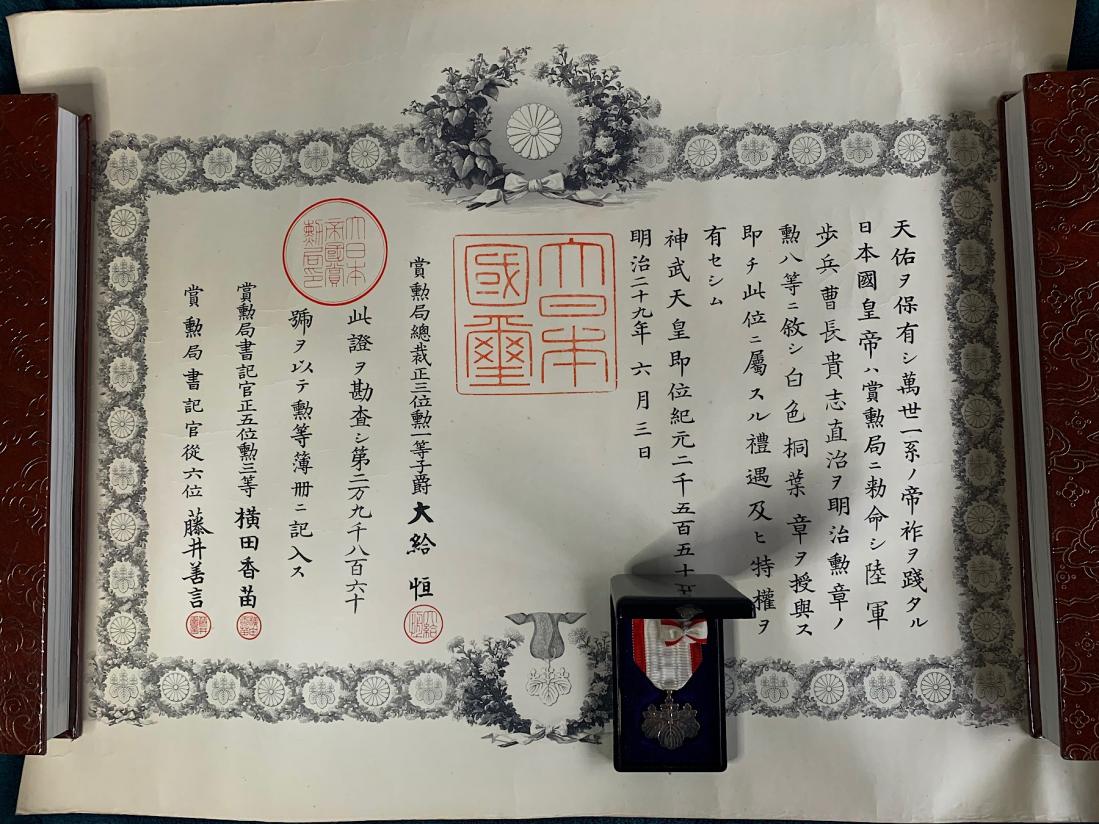 天佑ヲ保有シ萬世一系ノ帝祚ヲ踐タル
日本國皇帝ハ賞勲局ニ勅命シ陸軍
歩兵曹長貴志直治ヲ明治勲章ノ
勲八等ニ敘シ白色桐葉章ヲ授與ス
即チ此位ニ屬スル禮遇及ヒ特權ヲ
有セシム
神武天皇即位紀元二千五百五十
明治二十九年六月三日
大日本
國璽
賞勲局總裁正三位勲一等子爵大給恒
此證ヲ勘査シ第二万九千八百六十
號ヲ以テ勲等簿册ニ記入ス
大日本
帝國賞
勲局印
賞勲局書記官正五位勲三等横田香苗
賞勲局書記官從六位藤井善言